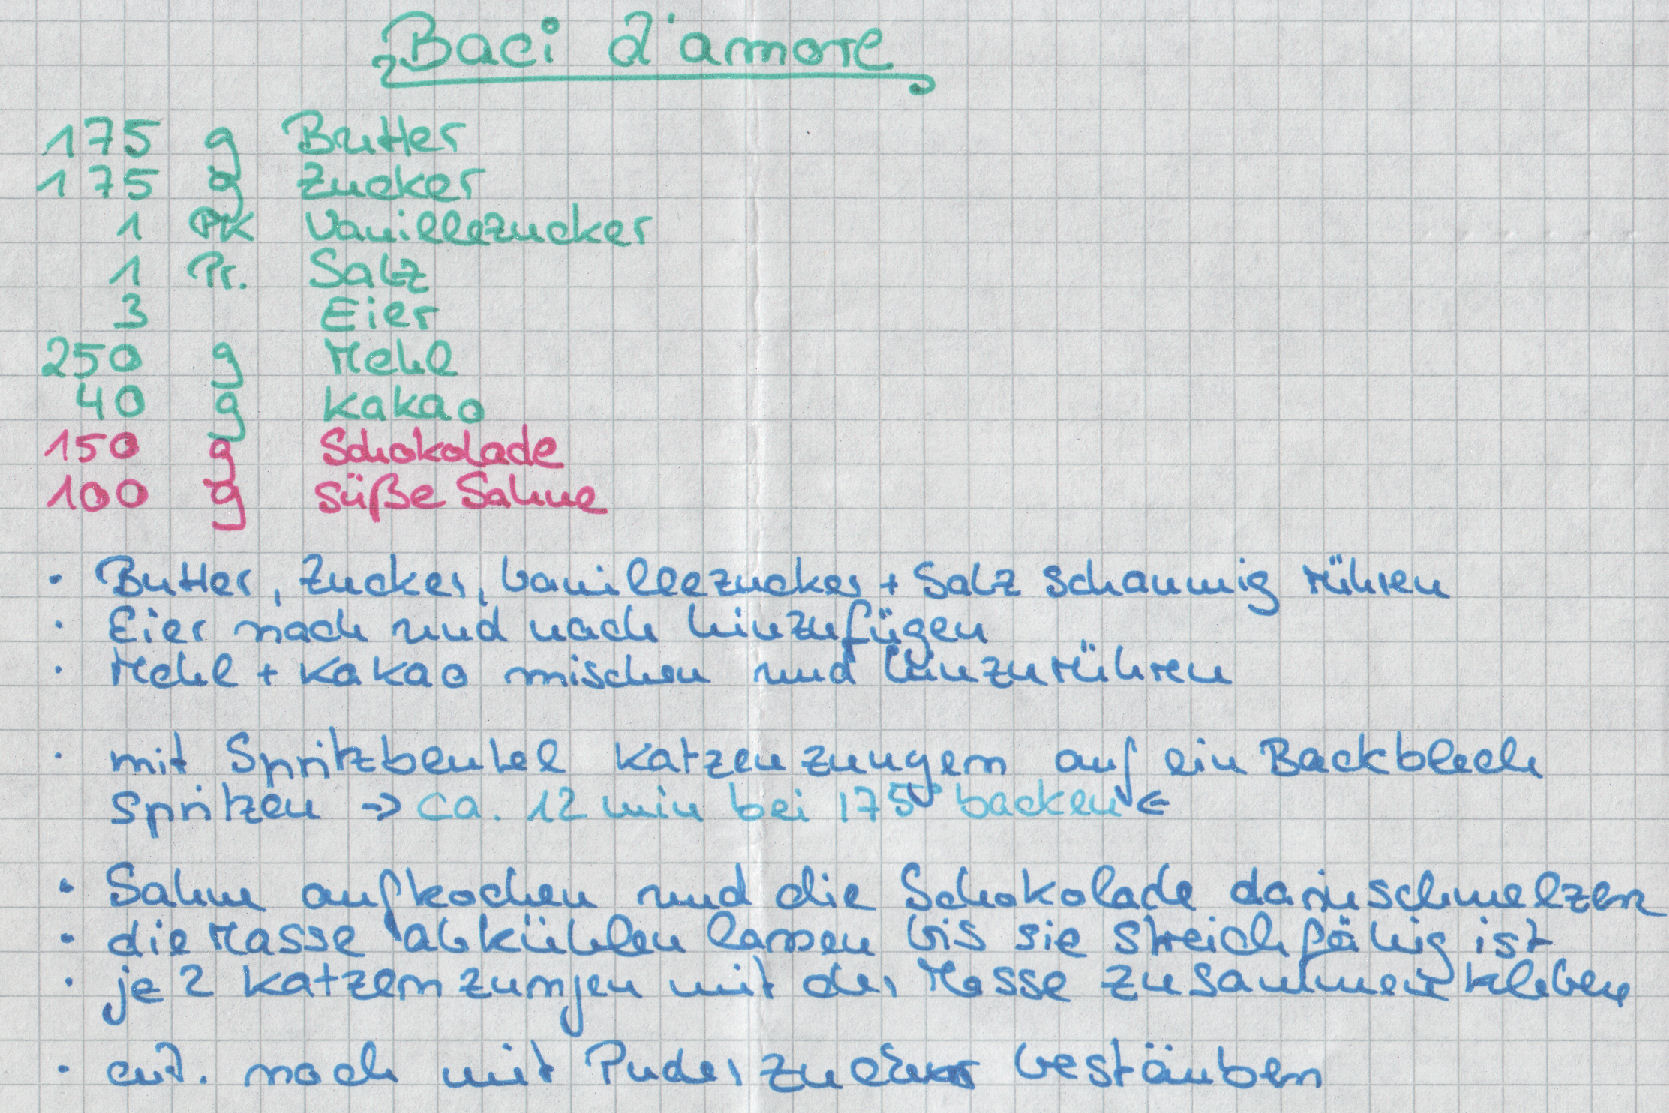 Baci d'amore
175 g Butter
175 g Zucker
1 PK Vanillezucker
1 Pr. Salz
3 Eier
250 g Mehl
40 g Kakao
150 g Schokolade
100 g süße Sahne
· Butter, Zucker, Vanillezucker + Salz schaumig rühren
· Eier nach und nach hinzufügen
· Mehl + Kakao mischen und hinzurühren
· mit Spritzbeutel Katzenzungen auf ein Backblech
spritzen → ca. 12 min bei 175° backen ←
· Sahne aufkochen und die Schokolade darin schmelzen
· die Masse abkühlen lassen bis sie streichfähig ist
· je 2 Katzenzungen mit der Masse zusammenkleben
· evt. noch mit Puderzucker bestäuben